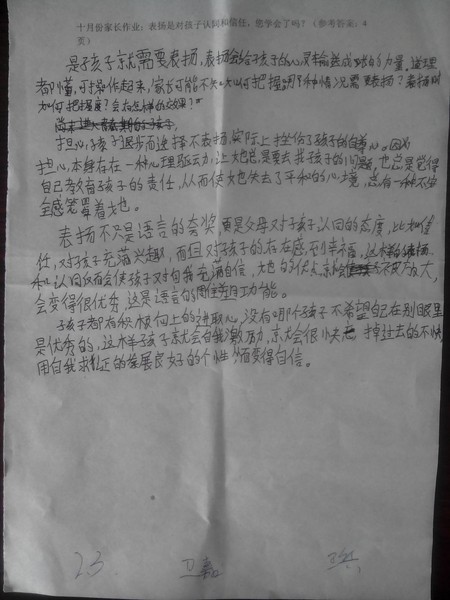 十月份家长作业：表扬是对孩子认同和信任，您学会了吗？（参考答案：4
页）
是孩子就需要表扬，表扬会给孩子的心灵输送成功的力量，道理
都懂，可操作起来，家长可能不知如何把握哪种情况需要表扬？表扬时
如何把握度？会有怎样的效果？
担心孩子退步而选择不表扬，实际上挫伤了孩子的自尊心。因为
担心，本身存在一种心理驱动力，让她总是要去找孩子的问题，也总是觉得
自己教育孩子的责任，从而使她也失去了平和的心境，总有一种不安
全感笼罩着她。
表扬不只是语言的夸奖，更是父母对孩子认同的态度，比如信
任，对孩子充满兴趣，而且对孩子的存在感到幸福，这样的表扬
和认同反而会使孩子对自我充满自信，她的优点就会被放大，
会变得很优秀，这是语言的功能。
孩子都有积极向上的进取心，没有哪个孩子不希望自己在别眼里
是优秀的，这样孩子就会自我激励，就会很快忘掉过去的不快，
用自我求正的发展良好的个性，变得自信。
23 卫